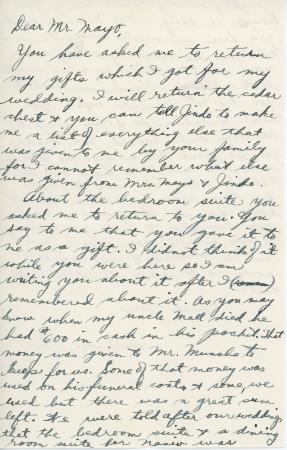 Dear Mr. Mayo,
You have asked me to return
my gifts which I got for my
wedding. I will return the cedar
chest & you can tell Jindo to make
me a list of everything else that
was given to me by your family
for I cannot remember what else
was given from Mrs. Mayo & Jindo.
About the bedroom suite you
asked me to return to you. You
say to me that you gave it to
me as a gift. I did not think of it
while you were here so I am
writing you about it after I
remembered about it. As you may
know when my uncle Matt died he
had $600 in cash in his pocket. That
money was given to Mr. to
keep for us. Some of that money was
used on his funeral costs & some, we
used but there was a great sum
left. We were told after our wedding
that the bedroom suite & a dining
room suite for was